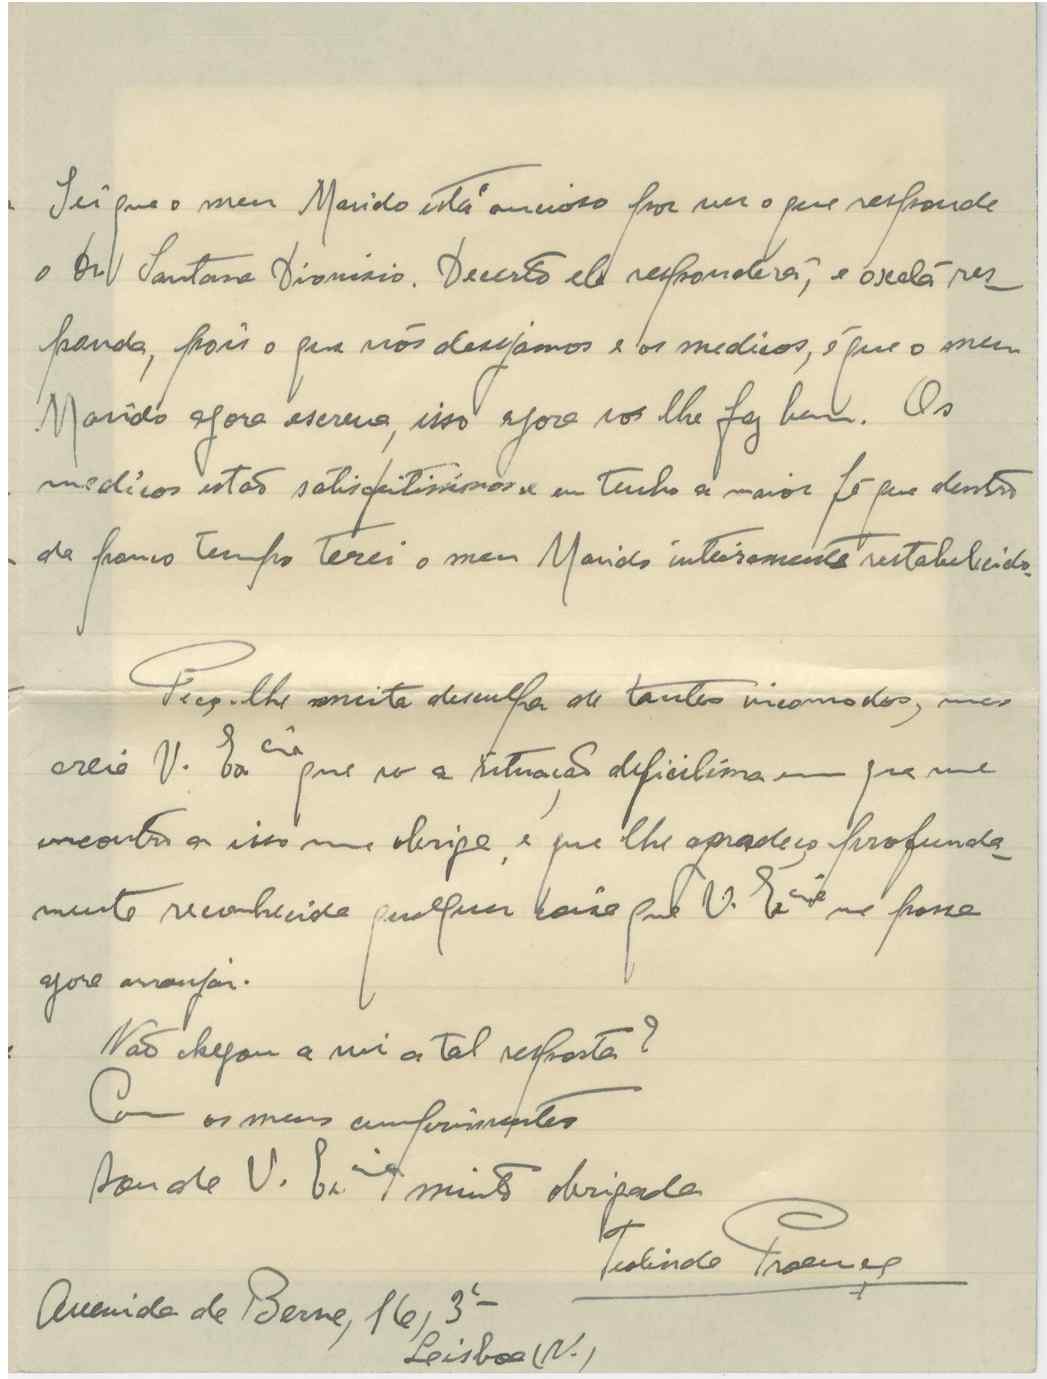 Sei que o meu Marido está ancioso por ver o que responde
o Dr Santana Dionisio. Decerto ele responderá, e oxalá res-
ponda, pois o que nós desejamos e os medicos, é que o meu
Marido agora escreva, isso agora só lhe faz bem. Os
medicos estão satisfeitissimos e eu tenho a maior fé que dentro
de pouco tempo terei o meu Marido inteiramente restabelecido.
Peço-lhe muita desculpa de tantos incomodos, mas
creia V. Exª que só a situação deficilima em que me
encontro a isso me obriga, e que lhe agradeço profunda-
mente reconhecida qualquer coisa que V. Exª me possa
agora arranjar.
Não chegou a vir a tal resposta?
Com os meus cumprimentos
sou de V. Exª muito obrigada
Teolinda Proença
Avenida de Berne, 16, 3º-
Leisboa (N.)